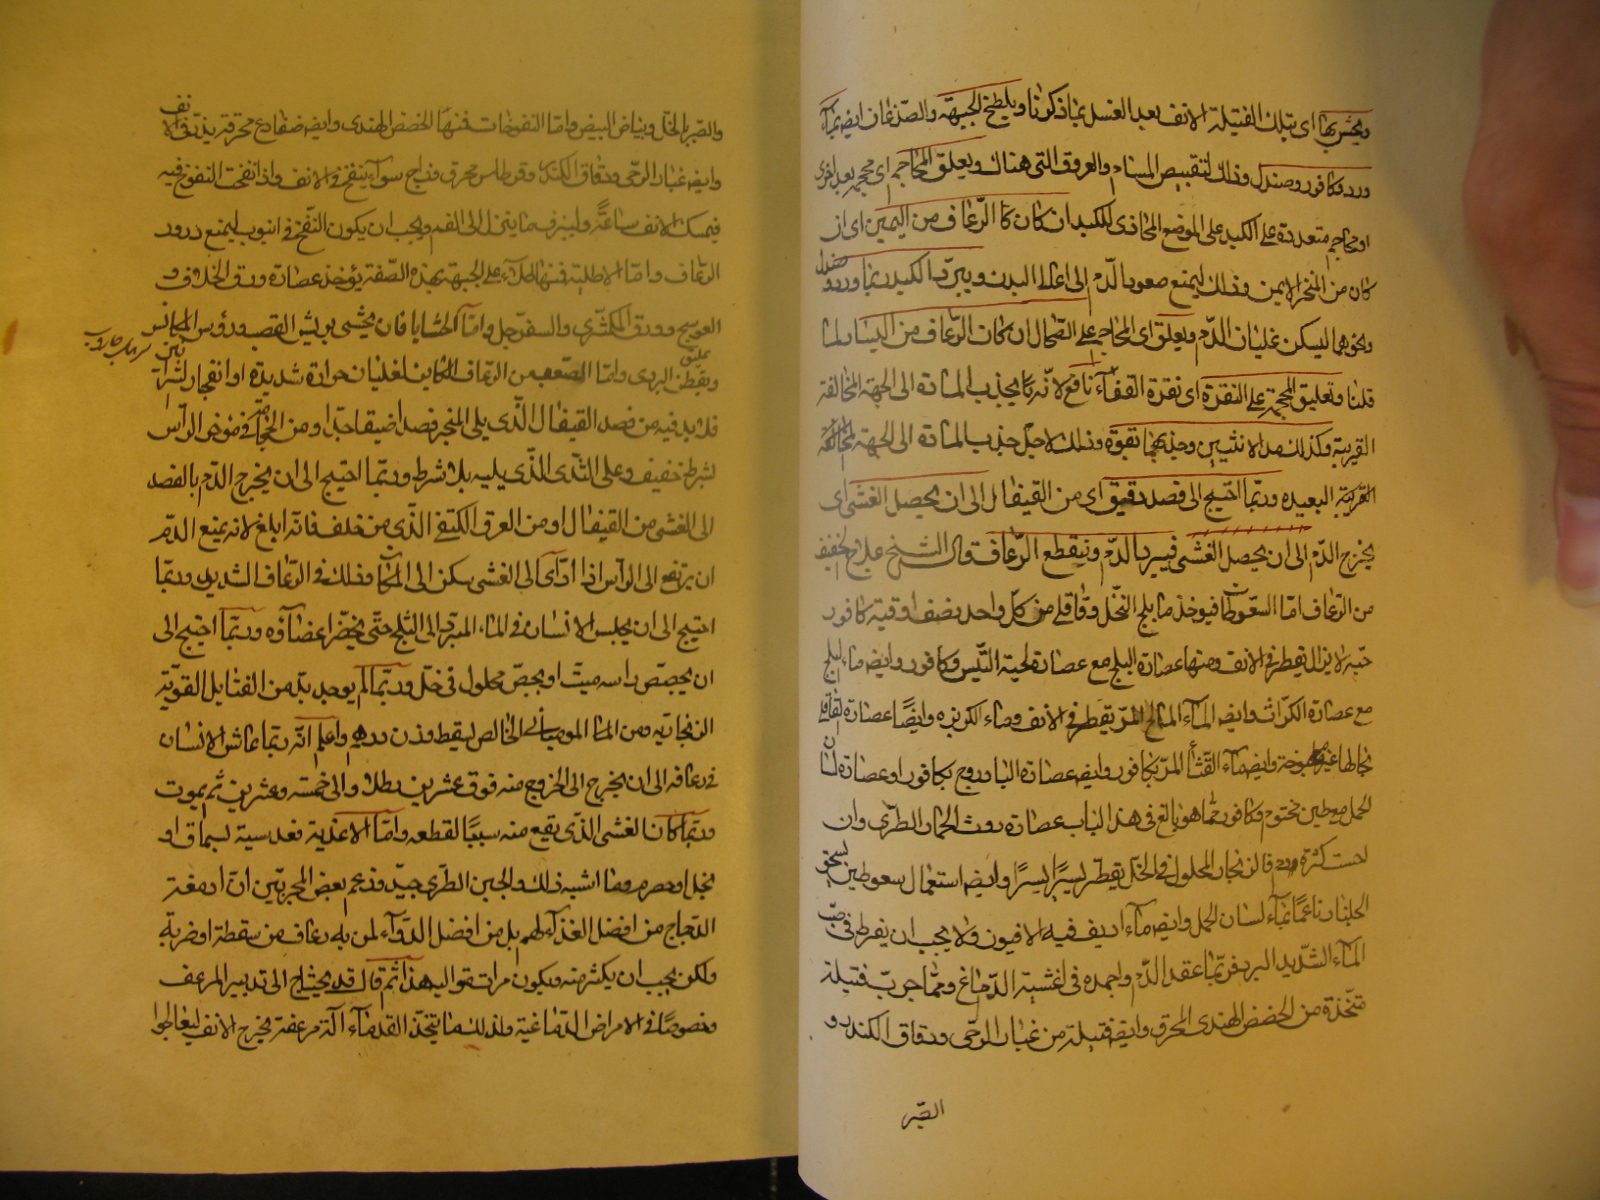 ويحشى بها اى بتلك الفتيلة الانف بعد الغسل بما ذكرنا ويلطخ الجبهة والصدغان ايضا بماء
ورد وكافور وصندل وذلك لتقبيض المسام والعروق التى هناك ويعلق المحاجم اى محجمة بعد اخرى
او محاجم متعددة على الكبد على الموضع المحاذى للكبد ان كان الرعاف من اليمين اى ان
كان من المنخر الايمن وذلك ليمنع صعود الدم الى اعلى البدن ويبرد الكبد بماورد وصندل
ونحوهما ليسكن غليان الدم ويعلق اى المحاجم على الطحال ان كان الرعاف من اليسار لما
قلنا وتعليق المحجمة على النقرة اى نقرة القفاء نافع لانه يجذب المادة الى الجهة المخالفة
القريبة وكذلك شد الانثيين وجذبهما بقوة وذلك لاجل جذب المادة الى الجهة المخالفة
البعيدة وربما احتيج الى فصد دقيق اى من القيفال الى ان يحصل الغشى اى
يخرج الدم الى ان يحصل الغشى فيبرد الدم وينقطع الرعاف قال الشيخ علاج الخفيف
من الرعاف اما السعوطات فيوخذ ما بلح النخل وقاقلى من كل واحد نصف اوقية كافور
حبة لايزال يقطر فى الانف ومنها عصارة البلح مع عصارة لحية التيس وكافور وايضا ماء البلح
مع عصارة الكراث وايضا الماء المالح المر يقطر فى الانف وماء الكزبره وايضا عصارة القاقلى
بحالها غير مطبوخة وايضا ماء القثاء المر بكافور وايضا عصارة البادروج بكافور او عصارة لسان
الحمل وطين مختوم وكافور مما هو بالغ فى هذا الباب عصارة روث الحمار الطرى وان
كثرة فالزنجار المحلول فى الخل يقطر يسيرا يسيرا وايضا استعمال سعوط من سحق
الجلنار ناعما بماء لسان الحمل وايضا ماء اديف فيه الافيون ولا يجب ان يفرط فى صب
الماء الشديد البرد فربما عقد الدم واجمده فى اغشية الدماغ ومما جرب فتيلة
متخذة من الحضض الهندى المحرق وايضا فتيلة من غبار الرحى ودقاق الكندر و
الصبر
والصبر بالخل وبياض البيض واما النفوخات فمنها الحضض الهندى وايضا ضفادع محرقة يذر فى الانف
وايضا غبار الرحى ودقاق الكندر وقرطاس محرق وزاج سواء ينفخ فى الانف واذا نفخت النفوخ فيه
فيمسك الانف ساعة وليبزق ما ينزل الى الفم ويجب ان يكون النفخ فى انبوب ليمنع درور
الرعاف واما الاطلية فمنها طلاء على الجبهة بهذه الصفة يؤخذ عصارة ورق الخلاف و
العوسج وورق الكمثرى والسفرجل واما الحشايا فان يحشى بريش القصب ورؤس المكانس
وبقطن البردى واما الصعب من الرعاف الكاين لغليان حرارة شديدة او انفجار لشرائين
فلا بد فيه من فصد القيفال الذى يلى المنخر فصدا ضيقا جدا ومن الحجامة فى مؤخر الراس
بشرط خفيف وعلى الثدى الذى يليه بلا شرط وربما احتيج الى ان يخرج الدم بالفصد
الى الغشى من القيفال او من العرق الكتفى الذى من خلف فانه ابلغ لانه يمنع الدم
ان يرتفع الى الراس فاذا ادى الى الغشى سكن الى المكان وذلك فى الرعاف الشديد وربما
احتيج الى ان يجلس الانسان فى الماء المبرد الى الثلج حتى يخضر اعضاؤه وربما احتيج الى
ان يجصص راسه بجص ميت او بجص محلول فى خل وربما لم يوجد بد من الفتايل القوية
الزنجارية ومن الماء الموميائى الخالص ليقطر وزن درهم واعلم انه ربما عاش الانسان
فى رعافه الى ان يخرج الى الخروج منه فوق عشرين رطلا والى خمسة وعشرين ثم يموت
وربما كان الغشى الذى يقع منه سببا لقطعه واما الاغذية فعدسية بسماق او
بخل او حصرم وما اشبه ذلك والجبن الطرى جيد وزعم بعض المجربين ان ادمغة
الدجاج من افضل الغذاء لهم بل من افضل الدواء لمن به رعاف من سقطة او ضربة
ولكن يجب ان يكثر منه ويكون مرات متواليه هذا ثم قال قد يحتاج الى تدبير المرعف
وخصوصا فى الامراض الدماغية ولذلك ما يتخذ القدماء آلة مرعفة يخرج الانف ليعالجوا